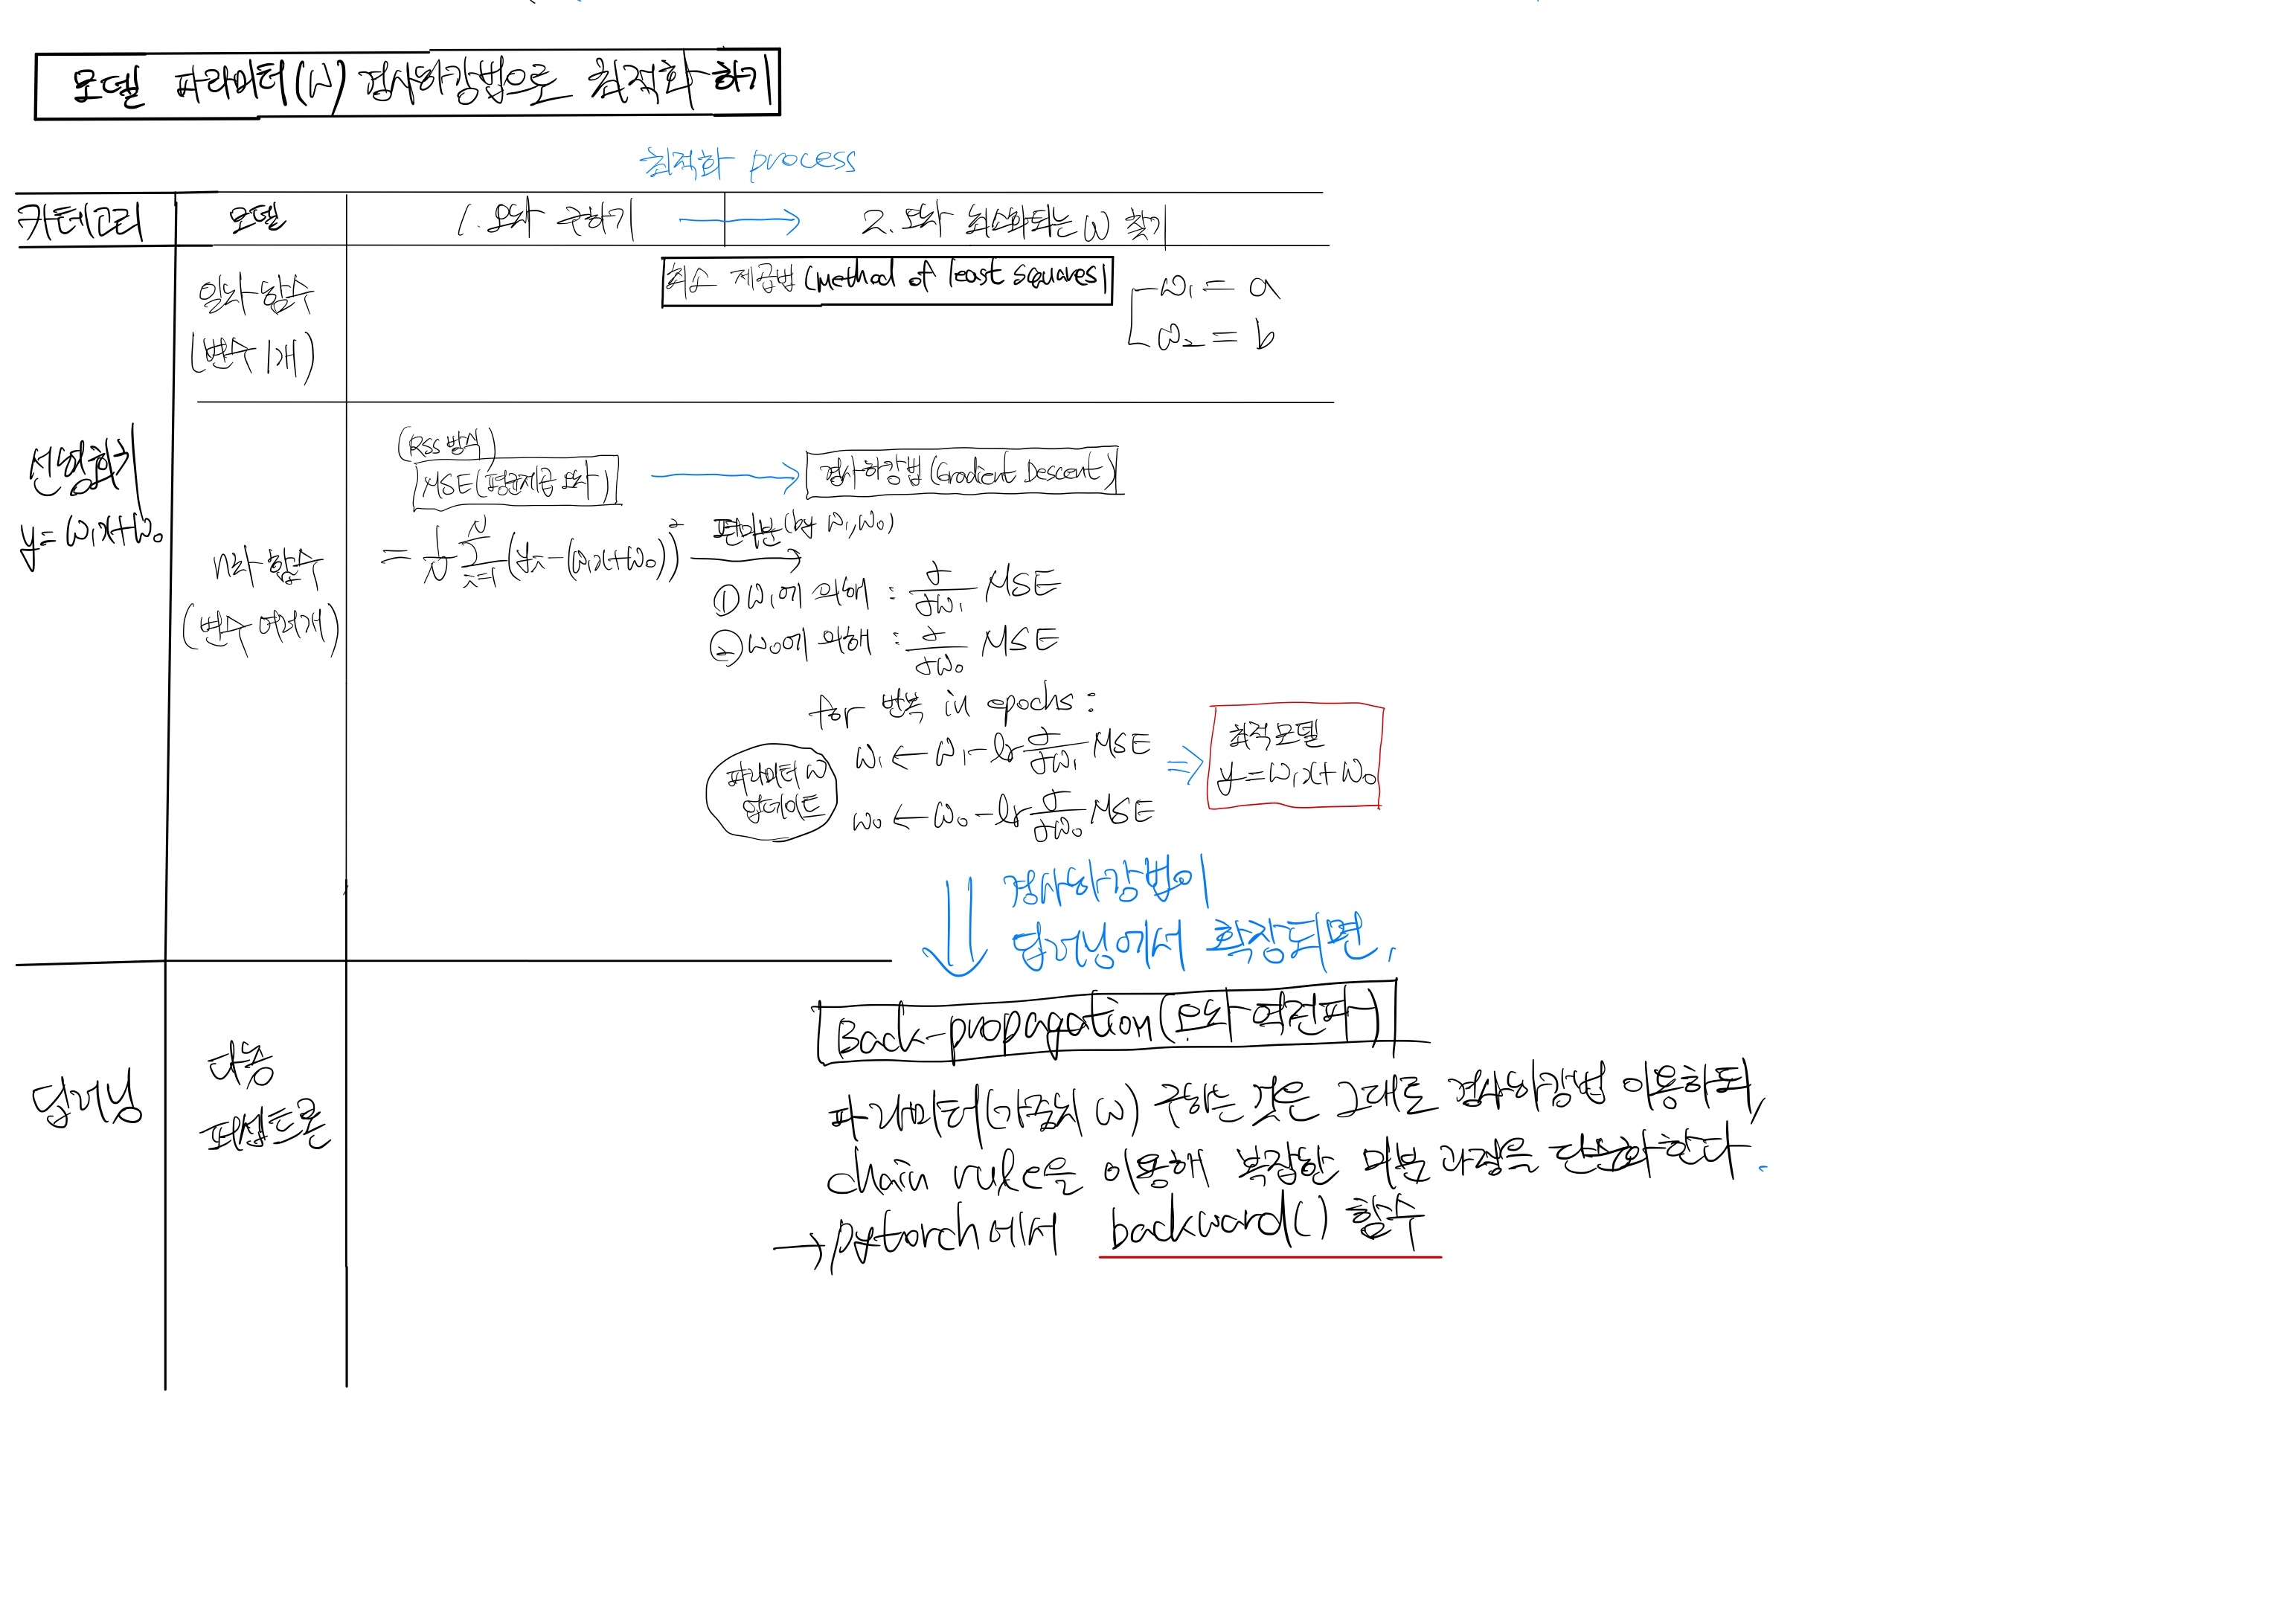 모델 파라미터(W) 경사하강법으로 최적화 하기
최적화 process
카테고리 모델 1. 오차 구하기 → 2. 오차 최소화되는 W 찾기
일차 함수
(변수 1개)
최소 제곱법 (method of least squares)
w₁ = a
w₂ = b
선형회귀
y = w₁x+w₀
n차 함수
(변수 여러개)
(RSS 방식)
MSE(평균제곱 오차) → 경사하강법 (Gradient Descent)
= 1/N Σ(i=1→N) (yᵢ-(w₁x+w₀))² → 편미분(by w₁, w₀)
① w₁에 의해 : ∂/∂w₁ MSE
② w₀에 의해 : ∂/∂w₀ MSE
for 반복 in epochs :
파라미터 W
업데이트
w₁ ← w₁ - lr ∂/∂w₁ MSE
w₀ ← w₀ - lr ∂/∂w₀ MSE
⇒ 최적모델
y = w₁x + w₀
경사하강법이
딥러닝에서 확장되면,
딥러닝
다층
퍼셉트론
Back-propagation (오차 역전파)
파라미터(가중치 W) 구하는 것은 그대로 경사하강법 이용하되,
chain rule을 이용해 복잡한 미분 과정을 단순화한다.
→ pytorch에서 backward() 함수